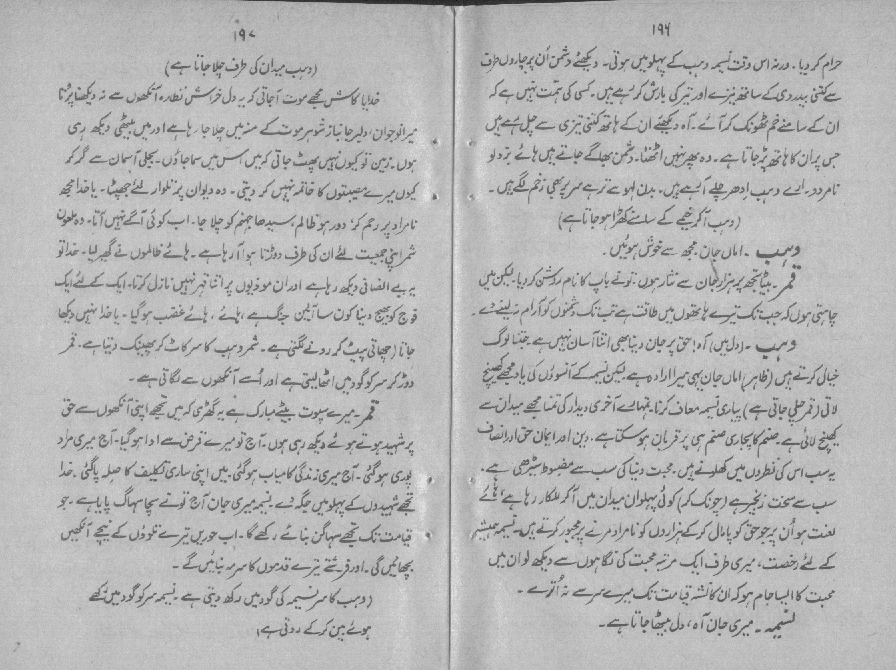 ۱۹۶
حرام کر دیا۔ ورنہ اس وقت نسیمہ وہب کے پہلو میں ہوتی۔ دیکھئے دشمن اُن پر چاروں طرف
سے کتنی بیدردی کے ساتھ نیزے اور تیر کی بارش کر رہے ہیں۔ کسی کی ہمت نہیں ہے کہ
ان کے سامنے خم ٹھونک کر آئے۔ آہ دیکھئے ان کے ہاتھ کتنی تیزی سے چل رہے ہیں
جس پر ان کا ہاتھ پڑ جاتا ہے۔ وہ پھر نہیں اٹھتا۔ دشمن بھاگے جاتے ہیں ہائے بزدلو
نامردو۔ ارے وہب اِدھر چلے آ رہے ہیں۔ بدن لہو سے تر ہے سر پر بھی زخم لگے ہیں۔
(وہب آ کر خیمے کے سامنے کھڑا ہو جاتا ہے)
وہب۔ اماں جان۔ مجھ سے خوش ہوئیں۔
قمر۔ بیٹا تجھ پر ہزار جان سے نثار ہوں۔ تو نے باپ کا نام روشن کر دیا۔ لیکن میں
چاہتی ہوں کہ جب تک تیرے ہاتھوں میں طاقت ہے تب تک دشمنوں کو آرام نہ لینے دے۔
وہب۔ (دل میں) آہ! حق پر جان دینا بھی اتنا آسان نہیں ہے۔ جتنا لوگ
خیال کرتے ہیں (ظاہر) اماں جان یہی میرا ارادہ ہے لیکن نسیمہ کے آنسوؤں کی یاد مجھے کھینچ
لائی (قمر چلی جاتی ہے) پیاری نسیمہ معاف کرنا۔ تمہارے آخری دیدار کی تمنا مجھے میدان سے
کھینچ لائی ہے۔ صنم کا پجاری صنم ہی پر قربان ہو سکتا ہے۔ دین اور ایمان حق اور انصاف
یہ سب اس کی نظروں میں کھلونے ہیں۔ محبت دنیا کی سب سے مضبوط بیڑھی ہے۔
سب سے سخت زنجیر ہے (چونک کر) کوئی پہلوان میدان میں آ کر للکار رہا ہے! ہائے
لعنت ہو اُن پر جو حق کو پامال کر کے ہزاروں کو نامراد مرنے پر مجبور کرتے ہیں۔ نسیمہ ہمیشہ
کے لئے رخصت، میری طرف ایک مرتبہ محبت کی نگاہوں سے دیکھ لو ان میں
محبت کا ایسا جام ہو کہ ان کا نشہ قیامت تک میرے سر سے نہ اُترے۔
نسیمہ۔ میری جان آہ، دل بیٹھا جاتا ہے۔
۱۹۷
(وہب میدان کی طرف چلا جاتا ہے)
خدایا کاش مجھے موت آ جاتی کہ یہ دل خراش نظارہ آنکھوں سے نہ دیکھنا پڑتا
میرا نوجوان، دلیر جانباز شوہر موت کے منہ میں چلا جا رہا ہے اور میں بیٹھی دیکھ رہی
ہوں۔ زمین تو کیوں نہیں پھٹ جاتی کہ میں اس میں سما جاؤں۔ بجلی آسمان سے گر کر
کیوں میرے مصیبتوں کا خاتمہ نہیں کر دیتی۔ وہ دیو ان پر تلوار لئے جھپٹا۔ یا خدا مجھ
نامراد پر رحم کر! دور ہو ظالم، سیدھا جہنم کو چلا جا۔ اب کوئی آگے نہیں آتا۔ وہ ملعون
شمر اپنی جمعیت لئے ان کی طرف دوڑتا ہوا آ رہا ہے۔ ہائے ظالموں نے گھیر لیا۔ خدا تو
یہ بے انصافی دیکھ رہا ہے اور ان موذیوں پر اپنا قہر نہیں نازل کرتا۔ ایک کے لئے ایک
فوج کو بھیج دینا کون سا آئین جنگ ہے، ہائے، ہائے غضب ہو گیا۔ یا خدا نہیں دیکھا
جاتا (چھاتی پیٹ کر رونے لگتی ہے۔ شمر وہب کا سر کاٹ کر پھینک دیتا ہے۔ قمر
دوڑ کر سر کو گود میں اٹھا لیتی ہے اور اُسے آنکھوں سے لگاتی ہے۔
قمر۔ میرے سپوت بیٹے مبارک ہے یہ گھڑی کہ میں تجھے اپنی آنکھوں سے حق
پر شہید ہوتے ہوئے دیکھ رہی ہوں۔ آج تو میرے قرض سے ادا ہو گیا۔ آج میری مراد
پوری ہو گئی۔ آج میری زندگی کامیاب ہو گئی۔ میں اپنی ساری تکلیف کا صلہ پا گئی۔ خدا
تجھے شہیدوں کے پہلو میں جگہ دے۔ نسیمہ میری جان آج تو نے سچا سہاگ پایا ہے۔ جو
قیامت تک تجھے سہاگن بنائے رکھے گا۔ اب حوریں تیرے تلووں کے نیچے آنکھیں
بچھائیں گی۔ اور فرشتے تیرے قدموں کا سرمہ بنائیں گے۔
(وہب کا سر نسیمہ کی گود میں رکھ دیتی ہے۔ نسیمہ سر کو گود میں رکھے
ہوئے بین کر کے روتی ہے)